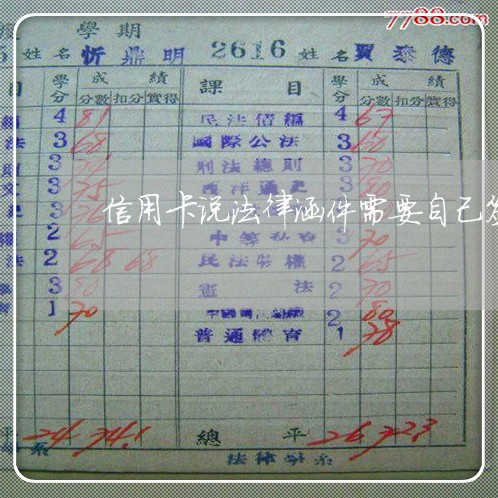 7788.com
學期
姓名 忻鼎明 2616 姓名 賈泰德
目 學分 成績 課目 學分 成績
分數 扣分 實得 分數 扣分 實得
4 81 民法債編 4 67
法 3 68 國際公法 3 60
3 刑法總則 3 70
3 75 西洋通史 3
信用卡说法律函件需要自己签
2 65 3 70
法 2 68 68 民法物權 2 65
3 80 憲法 2 70
1 70 2 80
普通體育 1 78
平 24 74.1 總平 26 72.3
系 法律學系